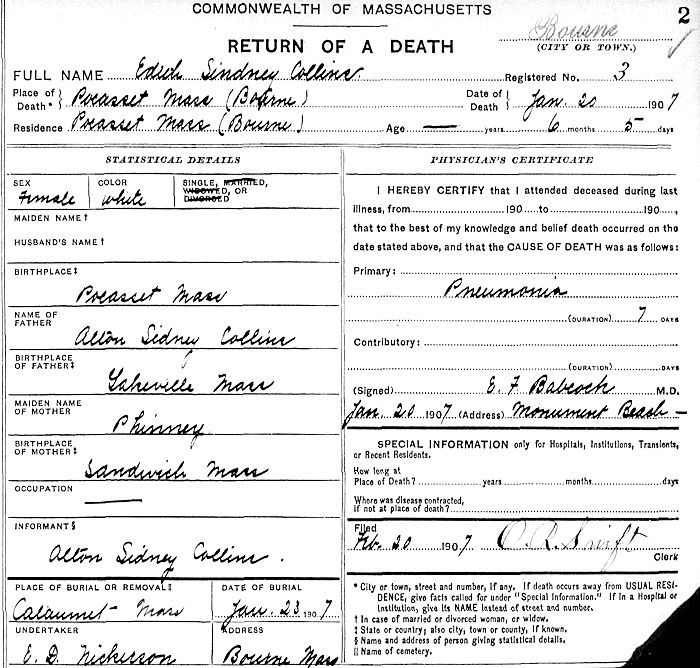 COMMONWEALTH OF MASSACHUSETTS
2
RETURN OF A DEATH
Bourne
(CITY OR TOWN.)
FULL NAME Edith Sindney Collins Registered No. 3
Place of Death * } Pocasset Mass (Bourne) Date of Death } Jan. 20 1907
Residence Pocasset Mass (Bourne) Age — years 6 months 5 days
STATISTICAL DETAILS
SEX Female
COLOR White
SINGLE, MARRIED, WIDOWED, OR DIVORCED
MAIDEN NAME †
HUSBAND'S NAME †
BIRTHPLACE ‡
Pocasset Mass
NAME OF FATHER
Alton Sidney Collins
BIRTHPLACE OF FATHER ‡
Lakeville Mass
MAIDEN NAME OF MOTHER
Phinney
BIRTHPLACE OF MOTHER ‡
Sandwich Mass
OCCUPATION —
INFORMANT §
Alton Sidney Collins.
PLACE OF BURIAL OR REMOVAL ‖
Cataumet Mass
DATE OF BURIAL
Jan. 23 1907
UNDERTAKER
E. D. Nickerson
ADDRESS
Bourne Mass
PHYSICIAN'S CERTIFICATE
I HEREBY CERTIFY that I attended deceased during last
illness, from 190 to 190 ,
that to the best of my knowledge and belief death occurred on the
date stated above, and that the CAUSE OF DEATH was as follows:
Primary:
Pneumonia
(DURATION) 7 DAYS
Contributory:
(DURATION) DAYS
(Signed) E. F. Babcock M.D.
Jan. 20 1907 (Address) Monument Beach -
SPECIAL INFORMATION only for Hospitals, Institutions, Transients,
or Recent Residents.
How long at
Place of Death? years months days
Where was disease contracted,
if not at place of death?
Filed
Feb. 20 1907 Swift
Clerk
* City or town, street and number, if any. If death occurs away from USUAL RESI-
DENCE, give facts called for under "Special Information." If in a Hospital or
Institution, give its NAME instead of street and number.
† In case of married or divorced woman, or widow.
‡ State or country; also city, town or county, if known.
§ Name and address of person giving statistical details.
‖ Name of cemetery.